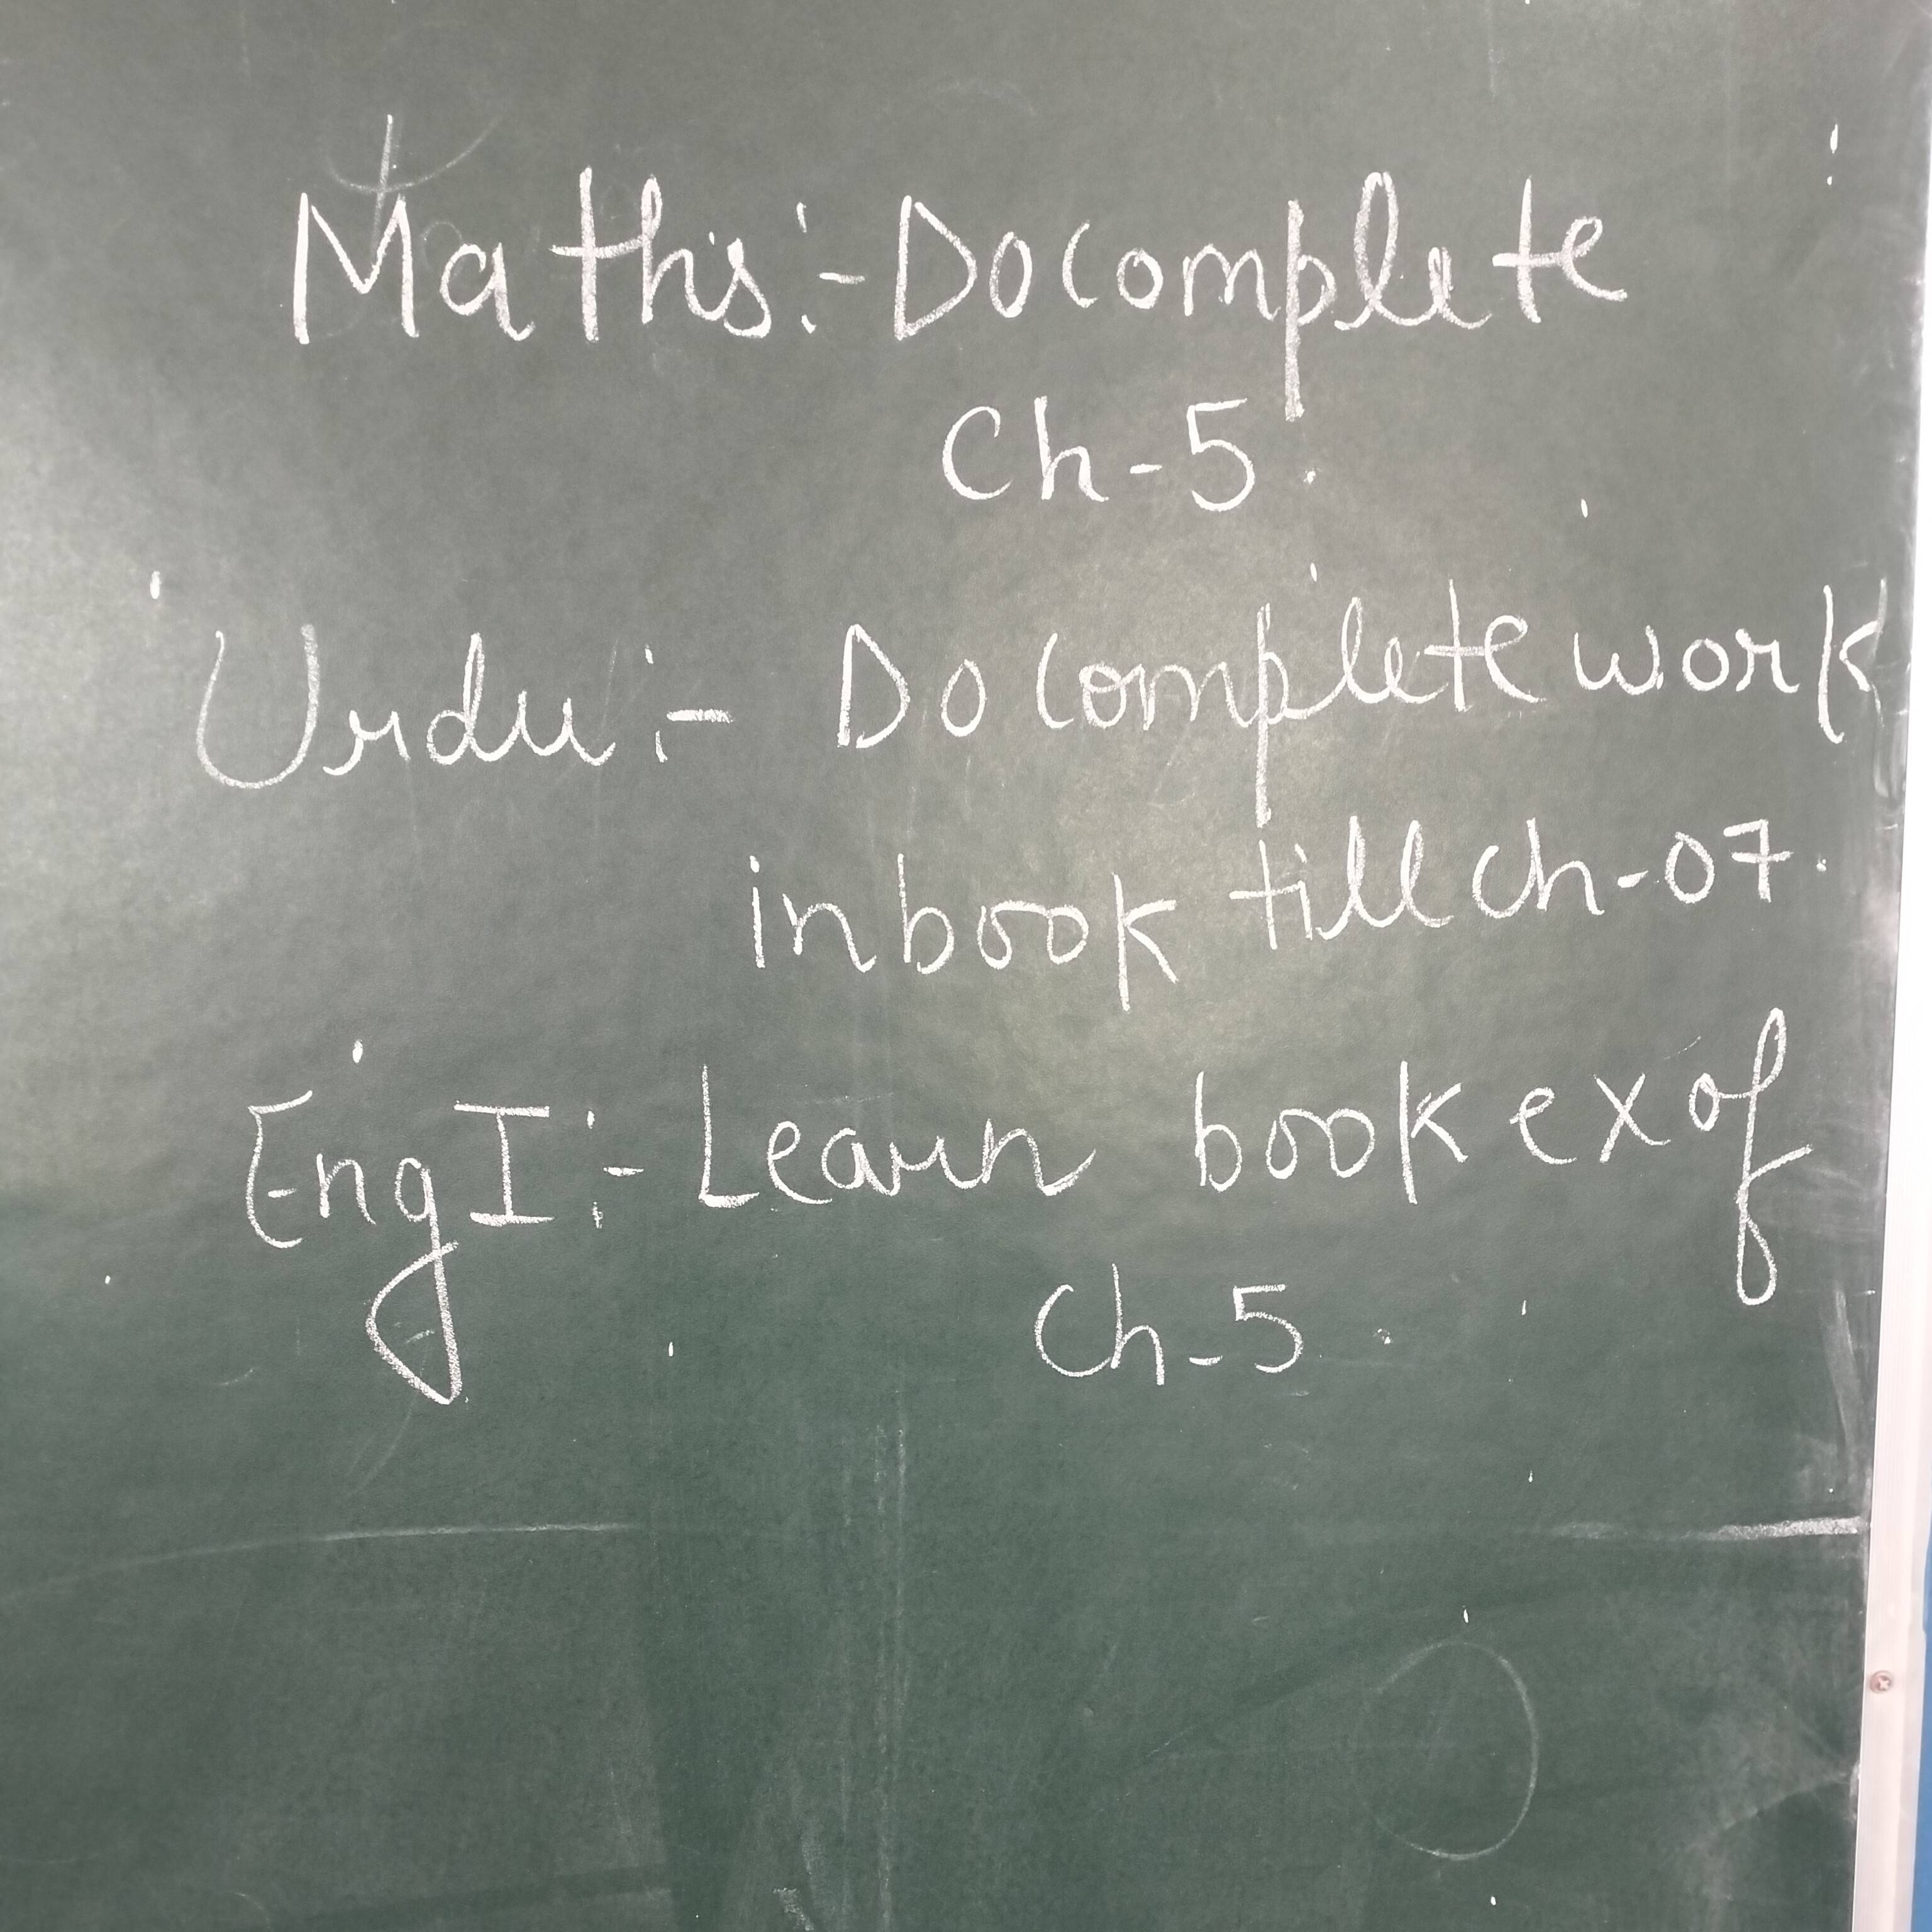 Maths:- Do complete
Ch-5.
Urdu:- Do complete work
in book till Ch-07.
Eng I:- Learn book ex of
Ch-5.